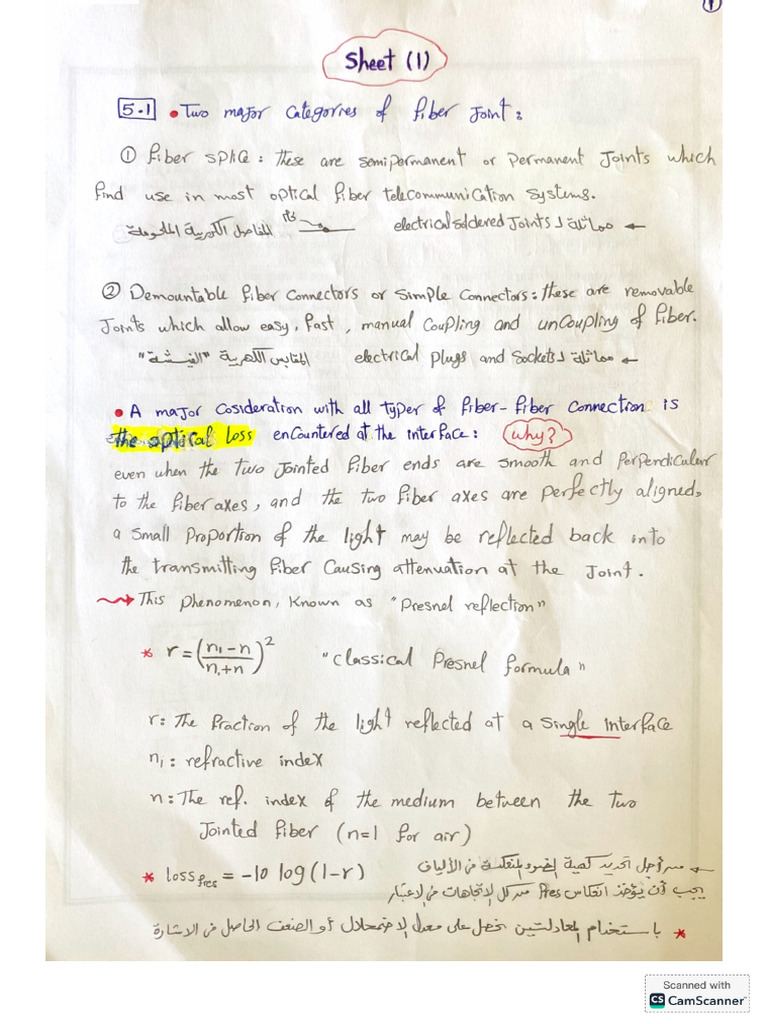 1
Sheet (1)
5.1 • Two major Categorries of fiber Joint:
① fiber splice: these are semipermanent or permanent Joints which
find use in most optical fiber telecommunication systems.
المفاصل الكهربية الملحومة مماثلة لـ electrical soldered Joints ←
② Demountable fiber Connectors or Simple Connectors: these are removable
Joints which allow easy, fast, manual Coupling and unCoupling of fiber.
المقابس الكهربية "الفيشة" مماثلة لـ electrical plugs and Sockets ←
• A major Cosideration with all types of fiber-fiber Connection is
the optical loss encountered at the interface: why?
even when the two Jointed fiber ends are smooth and perpendiculer
to the fiber axes, and the two fiber axes are perfectly aligned,
a small proportion of the light may be reflected back into
the transmitting fiber Causing attenuation at the Joint.
This phenomenon, Known as "Presnel reflection"
* r = (n₁-n / n₁+n)² "Classical Presnel formula"
r: The fraction of the light reflected at a Single Interface
n₁: refractive index
n: The ref. index of the medium between the two
Jointed fiber (n=1 for air)
* loss Fres = -10 log (1-r) من أجل تحديد كمية الضوء المنعكسة في الألياف ←
يجب أن يؤخذ انعكاس Fres من كل الاتجاهات في الاعتبار
* باستخدام المعادلتين نحصل على معدل الاضمحلال أو الضعف الحاصل في الاشارة
Scanned with
CS CamScanner